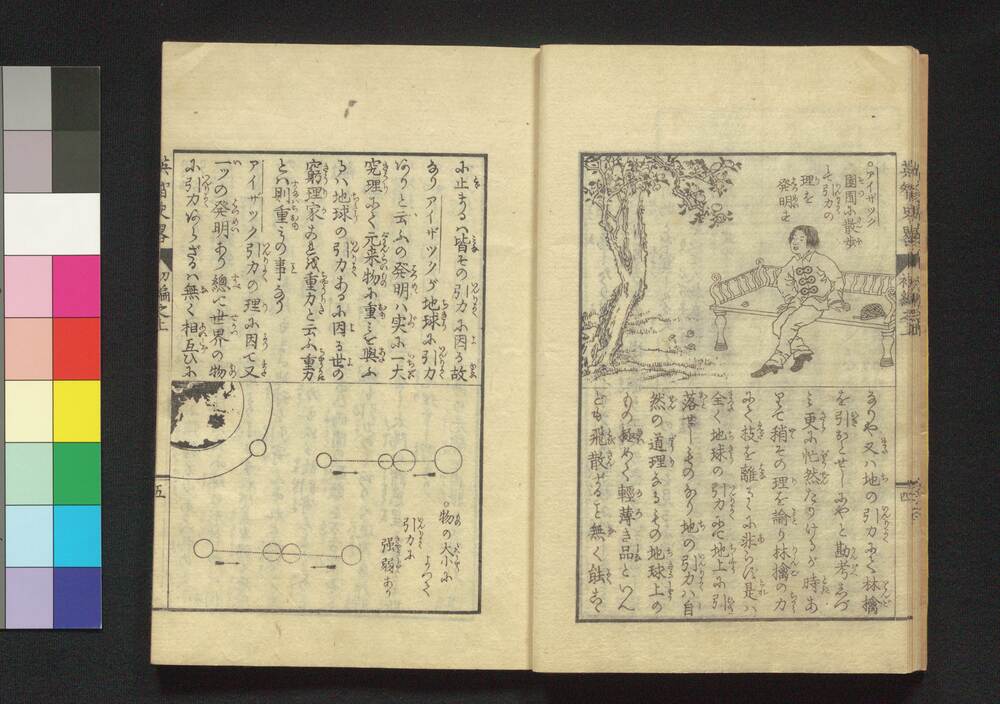 アイザック
園囿に散歩
して引力の
理を
発明す
なりや又ハ地の引力にて林檎
を引おとせしにやと勘考みづ
更に茫然たりけるが時あ
りて稍その理を諭り林檎の力
にて枝を離るるに非らず是ハ
全く地球の引力にて地上に引
落せしものなり地の引力ハ自
然の道理なるその地球上の
もの極めて軽薄き品といへ
とも飛散せること無く
四
に止まるハ皆その引力に因る故
なりアイザックが地球に引力
ありと云ふの発明ハ実に一大
究理にて元来物に重みを与ふ
るハ地球の引力あるに因る世の
窮理家これを重力と云ふ重力
とハ則重みの事なり
アイザック引力の理に因て又
一ツの発明あり総て世界の物
に引力あらざるハ無く相互ひに
物の大小に
よつて
引力に
強弱あり
五